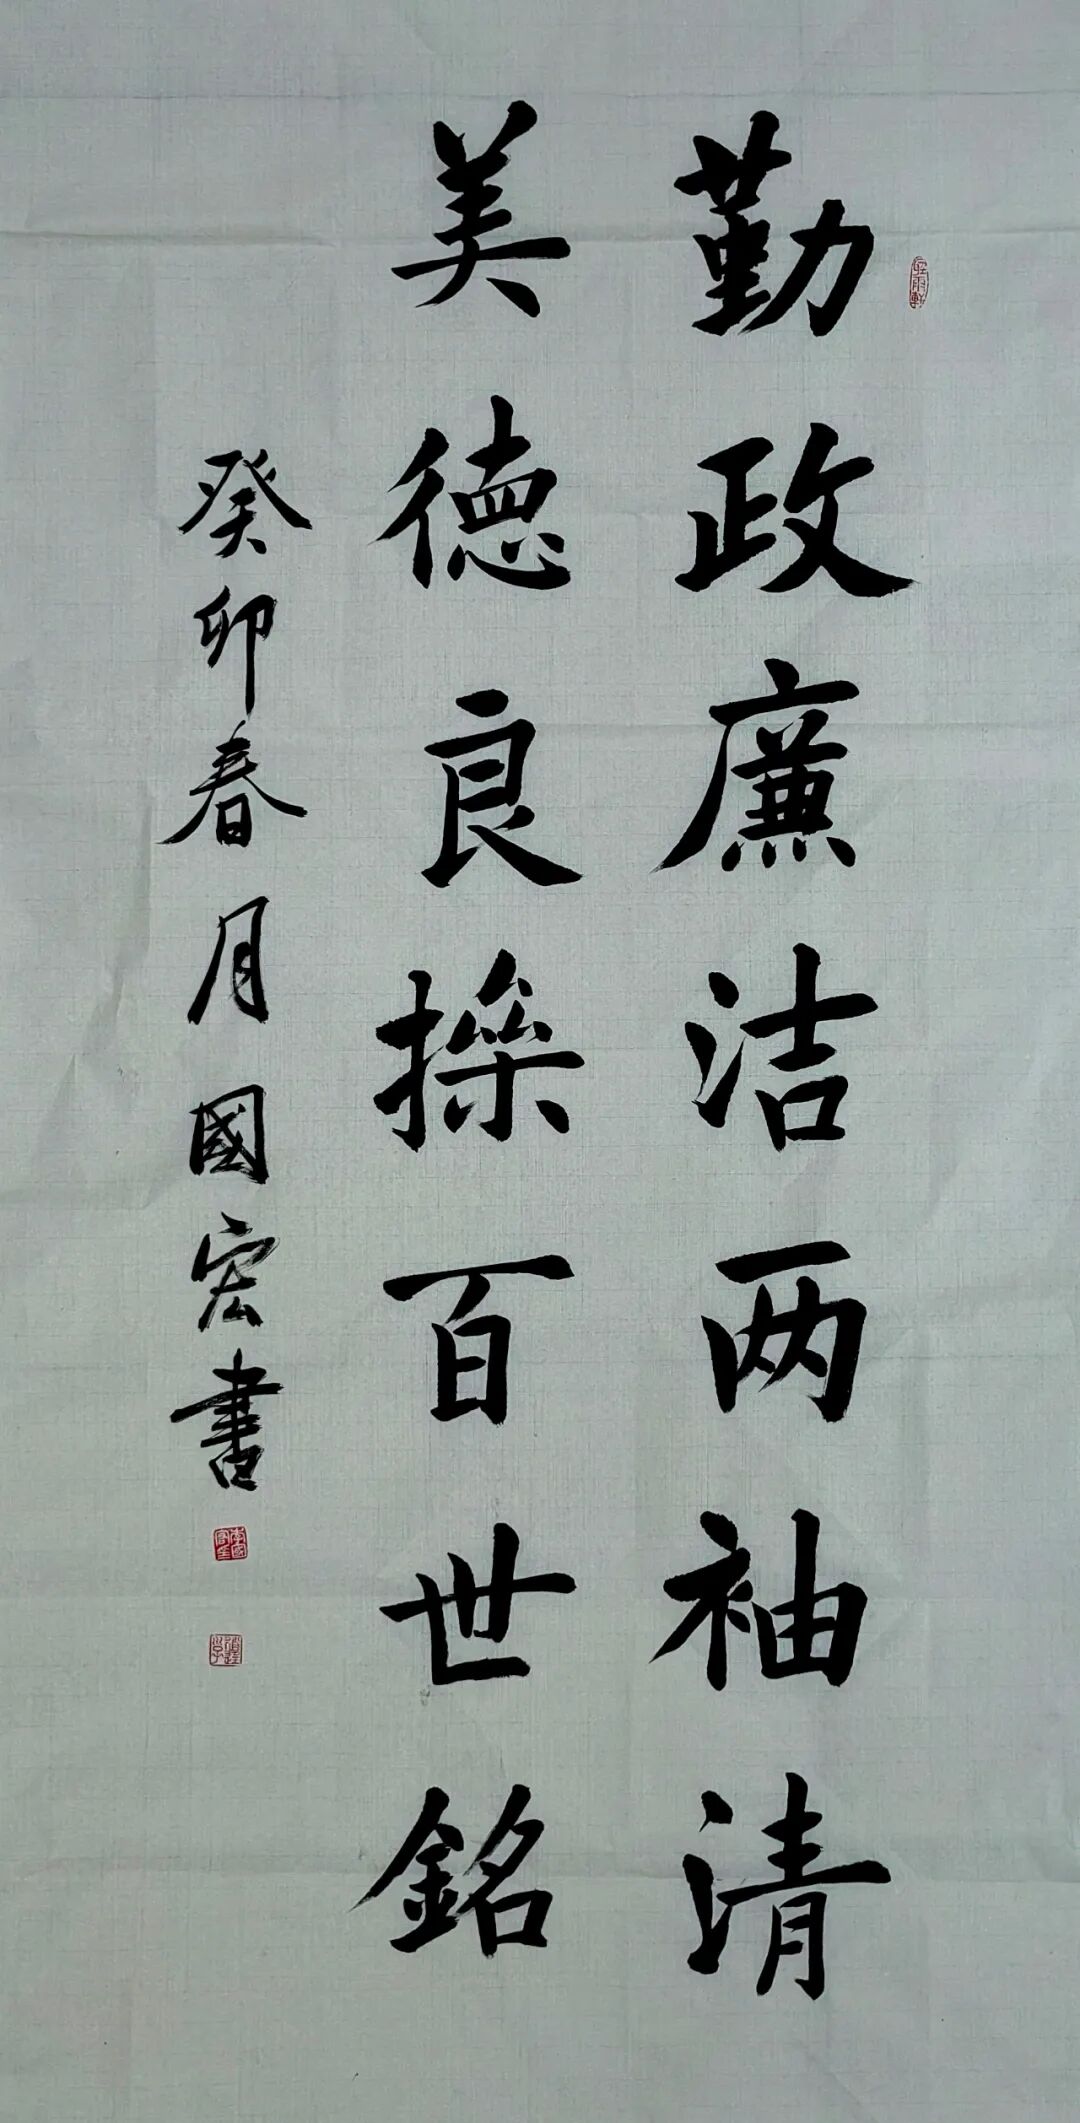 勤政廉洁两袖清
美德良操百世銘
癸卯春月國宏書